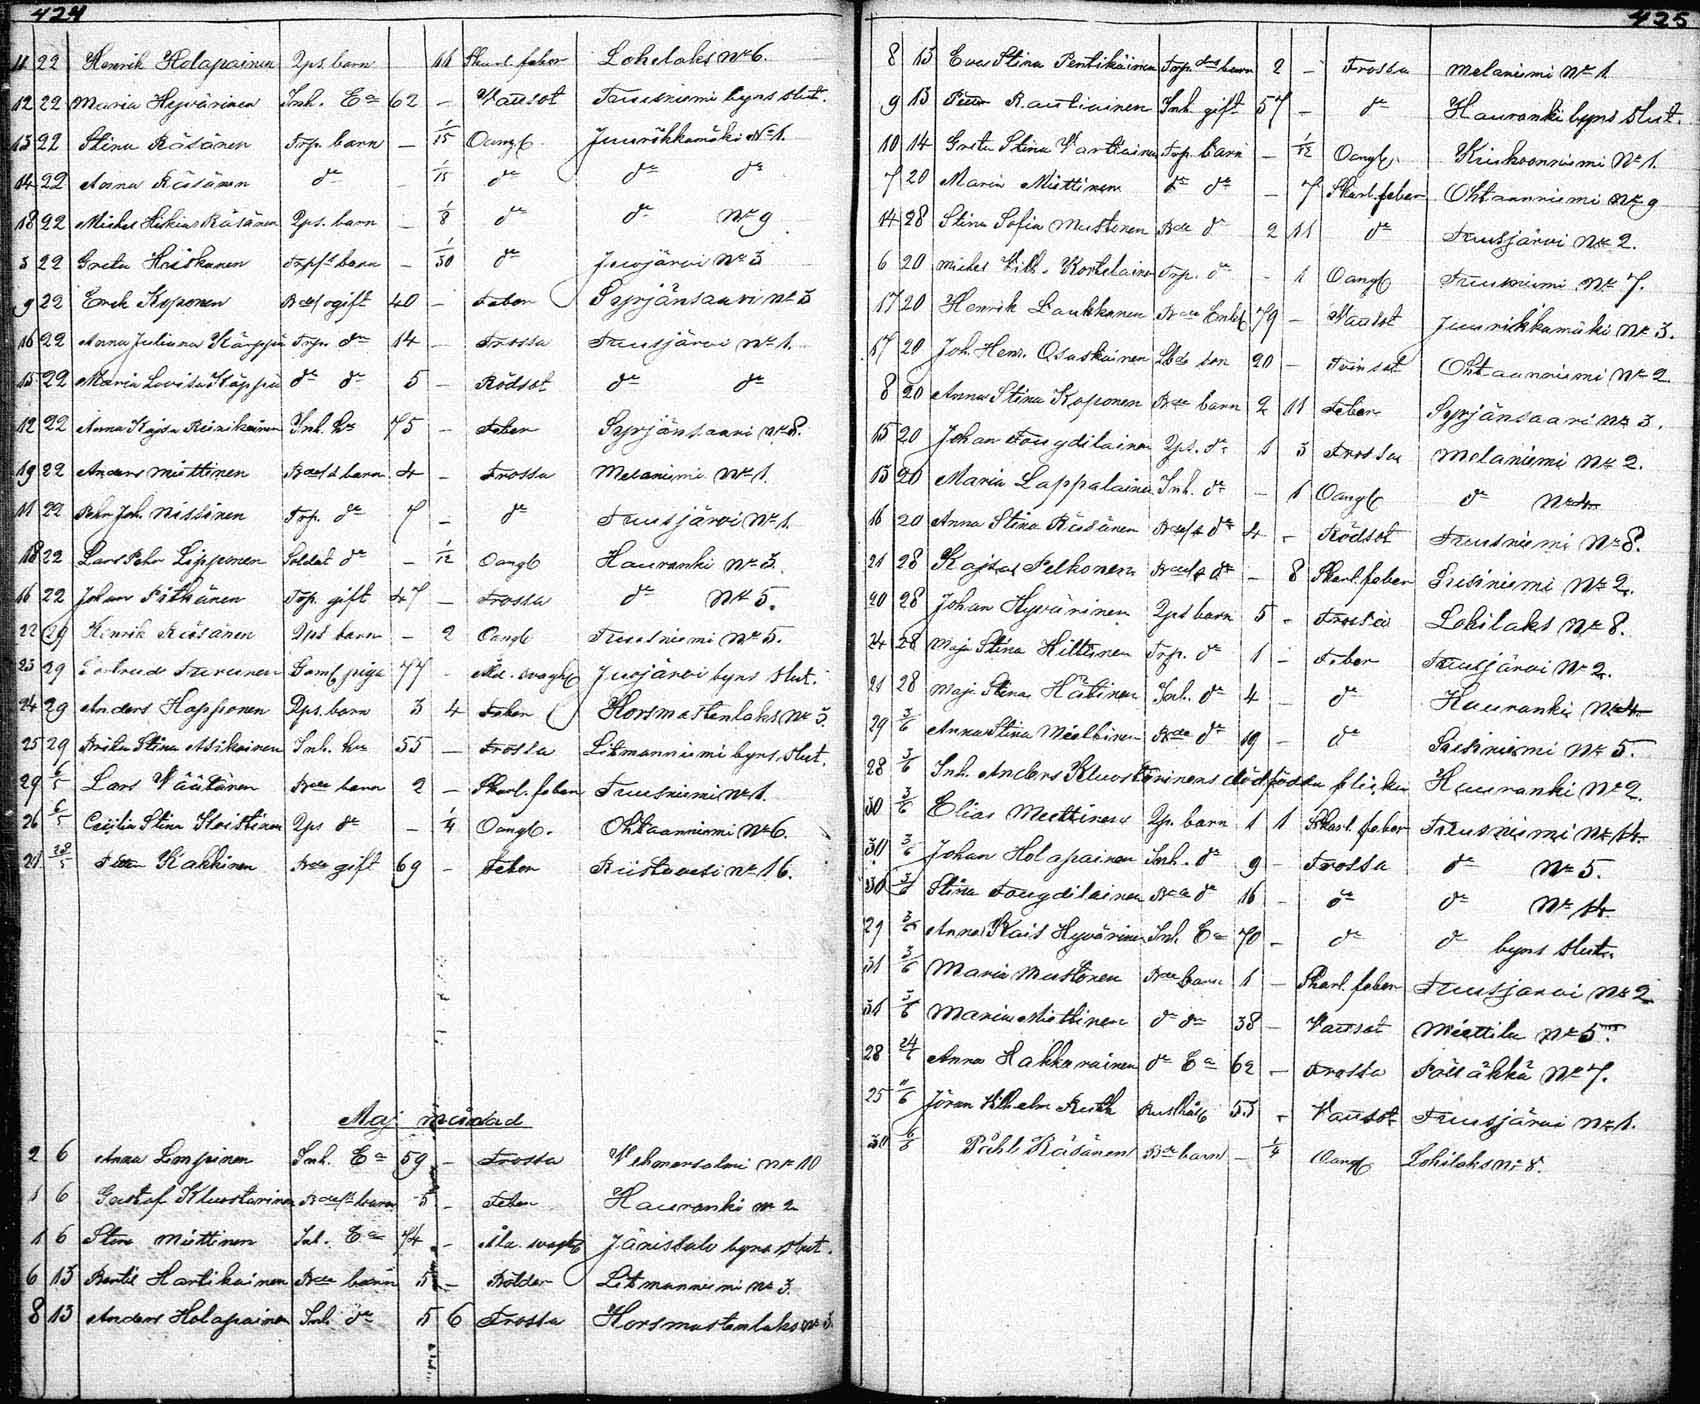 424
11 22 Henrik Holapainen Lps. barn 11 Skarl. feber Lohelaks No 6.
12 22 Maria Hyvärinen Inh. Ea 62 — Vattsot Tuusniemi byns slut.
13 22 Stina Räsänen Trp. barn — 1/15 Oangf. Juurikkamäki No 1.
14 22 Anna Räsänen do — 1/15 do do do
18 22 Michel Hiskias Räsänen Lps. barn — 1/8 do do No 9
3 22 Greta Heiskanen Trpst barn — 1/30 do Juojärvi No 3
9 22 Erik Koponen gift 40 — Feber Syrjänsaari No 3
16 22 Anna Juliana Käppi Trp. do 14 — Frossa Tuusjärvi No 1.
15 22 Maria Lovisa Käppi do do 5 — Rödsot do do
12 22 Anna Kajsa Reinikainen Inh. hu 75 — Feber Syrjänsaari No 8.
19 22 Anders Miettinen barn 4 — Frossa Melaniemi No 1.
11 22 Pehr Joh. Nissinen Trp. do 7 — do Tuusjärvi No 1.
18 22 Lars Pehr Lipponen Soldat do — 1/12 Oangf Hauranki No 3.
16 22 Johan Pitkänen Trp. gift 47 — Frossa do No 5.
22 29 Henrik Räsänen Lps barn — 2 Oangf Tuusniemi No 5.
23 29 Gertrud Turunen Gaml piga 77 — Åld. svaghet Juojärvi byns slut.
24 29 Anders Happonen Lps. barn 3 4 Feber Horsmastenlaks No 3.
25 29 Brita Stina Asikainen Inh. hu 55 — Frossa Litmaniemi byns slut.
29 6/5 Lars Väätänen Bde barn 2 — Skarl. feber Tuusniemi No 1.
26 6/5 Cecilia Stina Hoittinen Lps do — 1/4 Oangf. Ohtaanniemi No 6.
21 28/5 Kakkinen Bde gift 69 — Feber Riistavesi No 16.
Maj månad
2 6 Anna Limpinen Inh. Ea 59 — Frossa Vehmersalmi No 10
1 6 Gustaf Kluostarinen barn 5 — Feber Hauranki No 2
1 6 Stina Miettinen Inh. Ea 74 — Åld. svaghet Jänissalo byns slut.
6 13 Bertil Hartikainen Bde barn 5 — Bölder Litmaniemi No 3.
8 13 Anders Holapainen Inh. do 5 6 Frossa Horsmastenlaks No 3.
425
8 13 Eva Stina Pentikäinen Trp. barn 2 — Frossa Melaniemi No 1
9 13 Rautiainen Inh. gift 57 — do Hauranki byns slut.
10 14 Greta Stina Vartiainen Trp. barn — 1/12 Oangf Kiukoonniemi No 1.
7 20 Maria Miettinen do do — 7 Skarl. feber Ohtaanniemi No 9
14 28 Stina Sofia Mustonen Bde do 2 11 do Tuusjärvi No 2.
6 20 Michel Vilh. Kortelainen Trp. do — 1 Oangf Tuusniemi No 7.
17 20 Henrik Laukkanen Bde Enkl 79 — Vattsot Juurikkamäki No 3.
17 20 Joh. Henr. Osaskainen Lbds son 20 — Tvinsot Ohtaanniemi No 2
8 20 Anna Stina Koponen Bde barn 2 11 Feber Syrjänsaari No 3.
15 20 Johan Tougdilainen Lps. do 1 3 Frossa Melaniemi No 2.
15 20 Maria Lappalainen Inh. do — 1 Oangf do No 4
16 20 Anna Stina Räsänen do 4 — Rödsot Tuusniemi No 8.
21 28 Kajsa Pelkonen do — 8 Skarl. feber Susiniemi No 2.
20 28 Johan Hyvärinen Lps barn 5 — Frossa Lohilaks No 8.
24 28 Maja Stina Hiltunen Trp. do 1 — Feber Tuusjärvi No 2.
21 28 Maja Stina Hätinen Inh. do 4 — do Hauranki No 4
29 3/6 Anna Stina Miettinen Bde do 19 — do Susiniemi No 5.
28 3/6 Inh. Anders Kluostarinens dödfödda flicka Hauranki No 2.
30 3/6 Elias Miettinen Lp. barn 1 1 Skarl. feber Tuusniemi No 14.
30 3/6 Johan Holapainen Inh. do 9 — Frossa do No 5.
30 3/6 Stina Tougdilainen Bde do 16 — do do No 14
29 3/6 Anna Kais Hyvärinen Inh. Ea 70 — do do byns slut.
31 3/6 Maria Mustonen Bde barn 1 — Skarl. feber Tuusjärvi No 2
31 3/6 Maria Miettinen do do 38 — Vattsot Miettila No 5.
28 24/6 Anna Hakkarainen do Ea 62 — Frossa Pölläkkä No 7.
25 11/6 Jöran Vilhelm Ruth Rusthåll 53 — Vattsot Tuusjärvi No 1.
30 Påhl Räsänen Bde barn — 1/4 Oangf Lohilaks No 8.